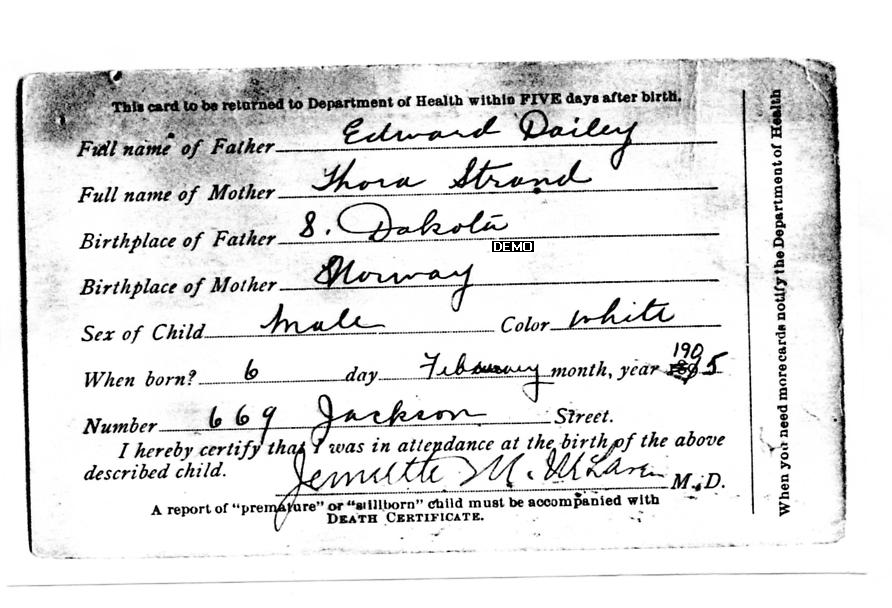 This card to be returned to Department of Health within FIVE days after birth.
Full name of Father Edward Dailey
Full name of Mother Thora Strand
Birthplace of Father S. Dakota
DEMO
Birthplace of Mother Norway
Sex of Child Male Color White
When born? 6 day February month, year 1905
Number 669 Jackson Street.
I hereby certify that I was in attendance at the birth of the above
described child.
M. McLaren M.D.
A report of "premature" or "stillborn" child must be accompanied with
DEATH CERTIFICATE.
When you need more cards notify the Department of Health